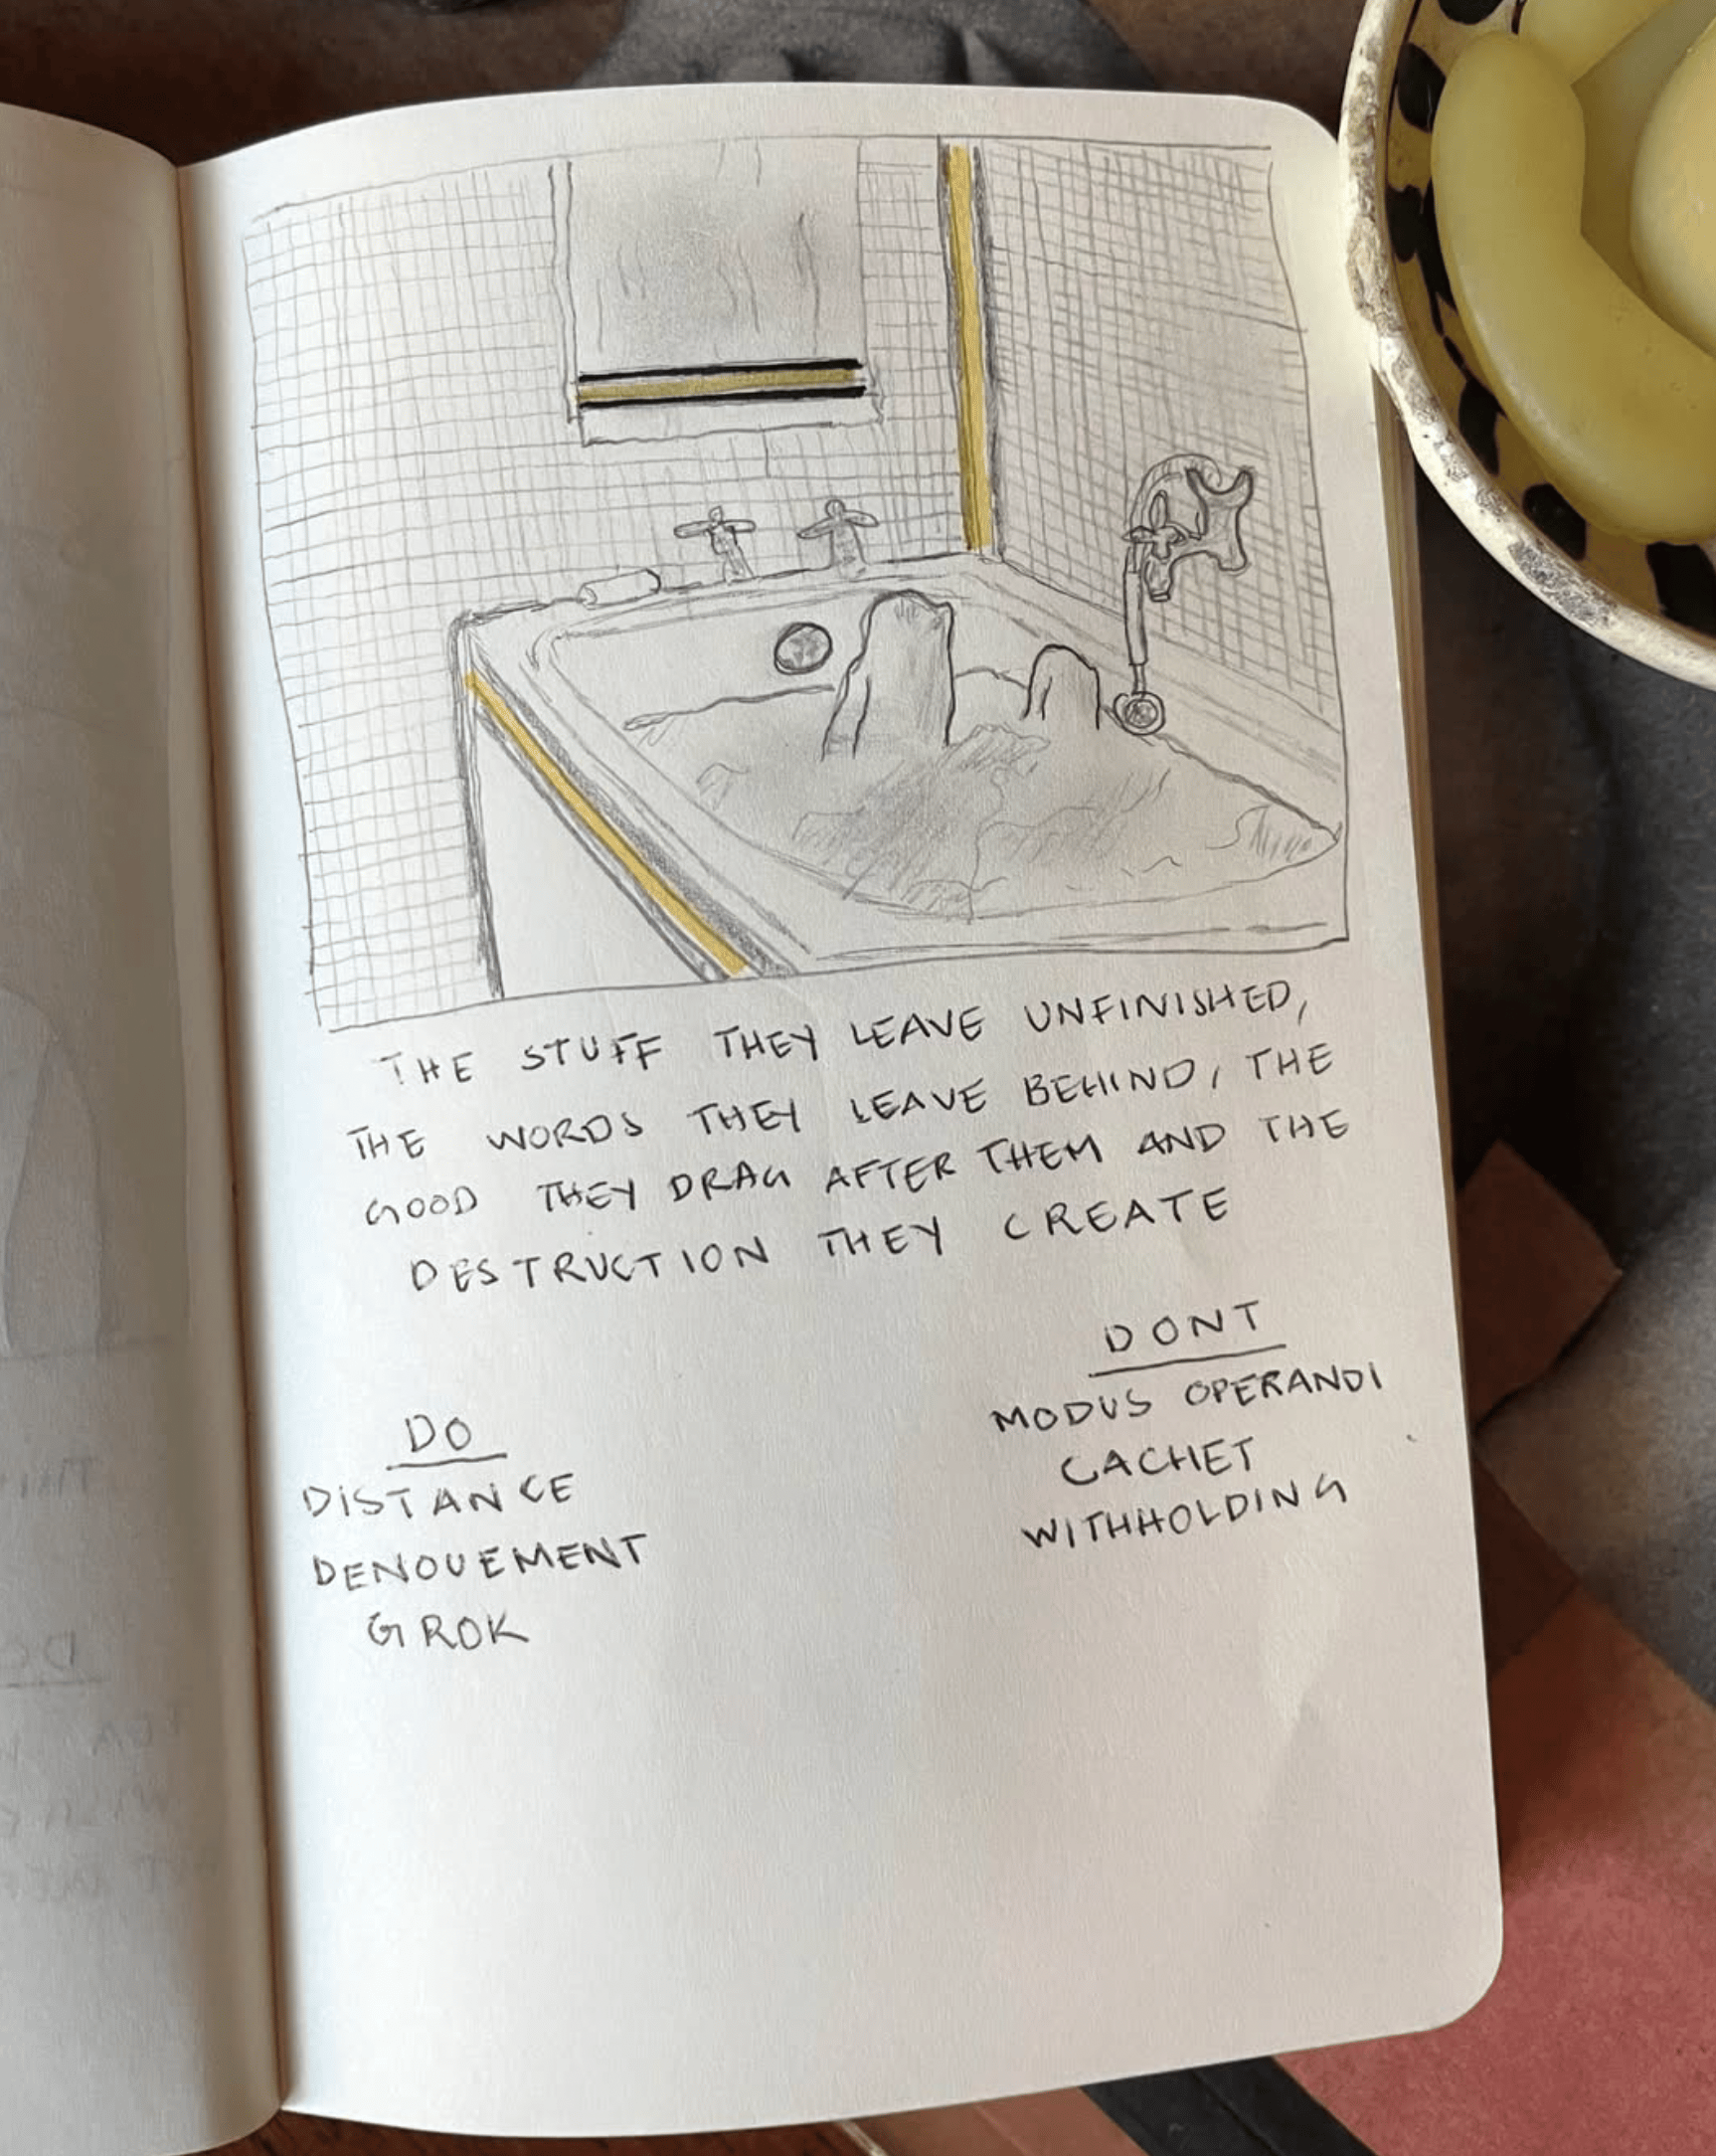 THE STUFF THEY LEAVE UNFINISHED,
THE WORDS THEY LEAVE BEHIND, THE
GOOD THEY DRAG AFTER THEM AND THE
DESTRUCTION THEY CREATE
DO
DISTANCE
DENOUEMENT
GROK
DONT
MODUS OPERANDI
CACHET
WITHHOLDING